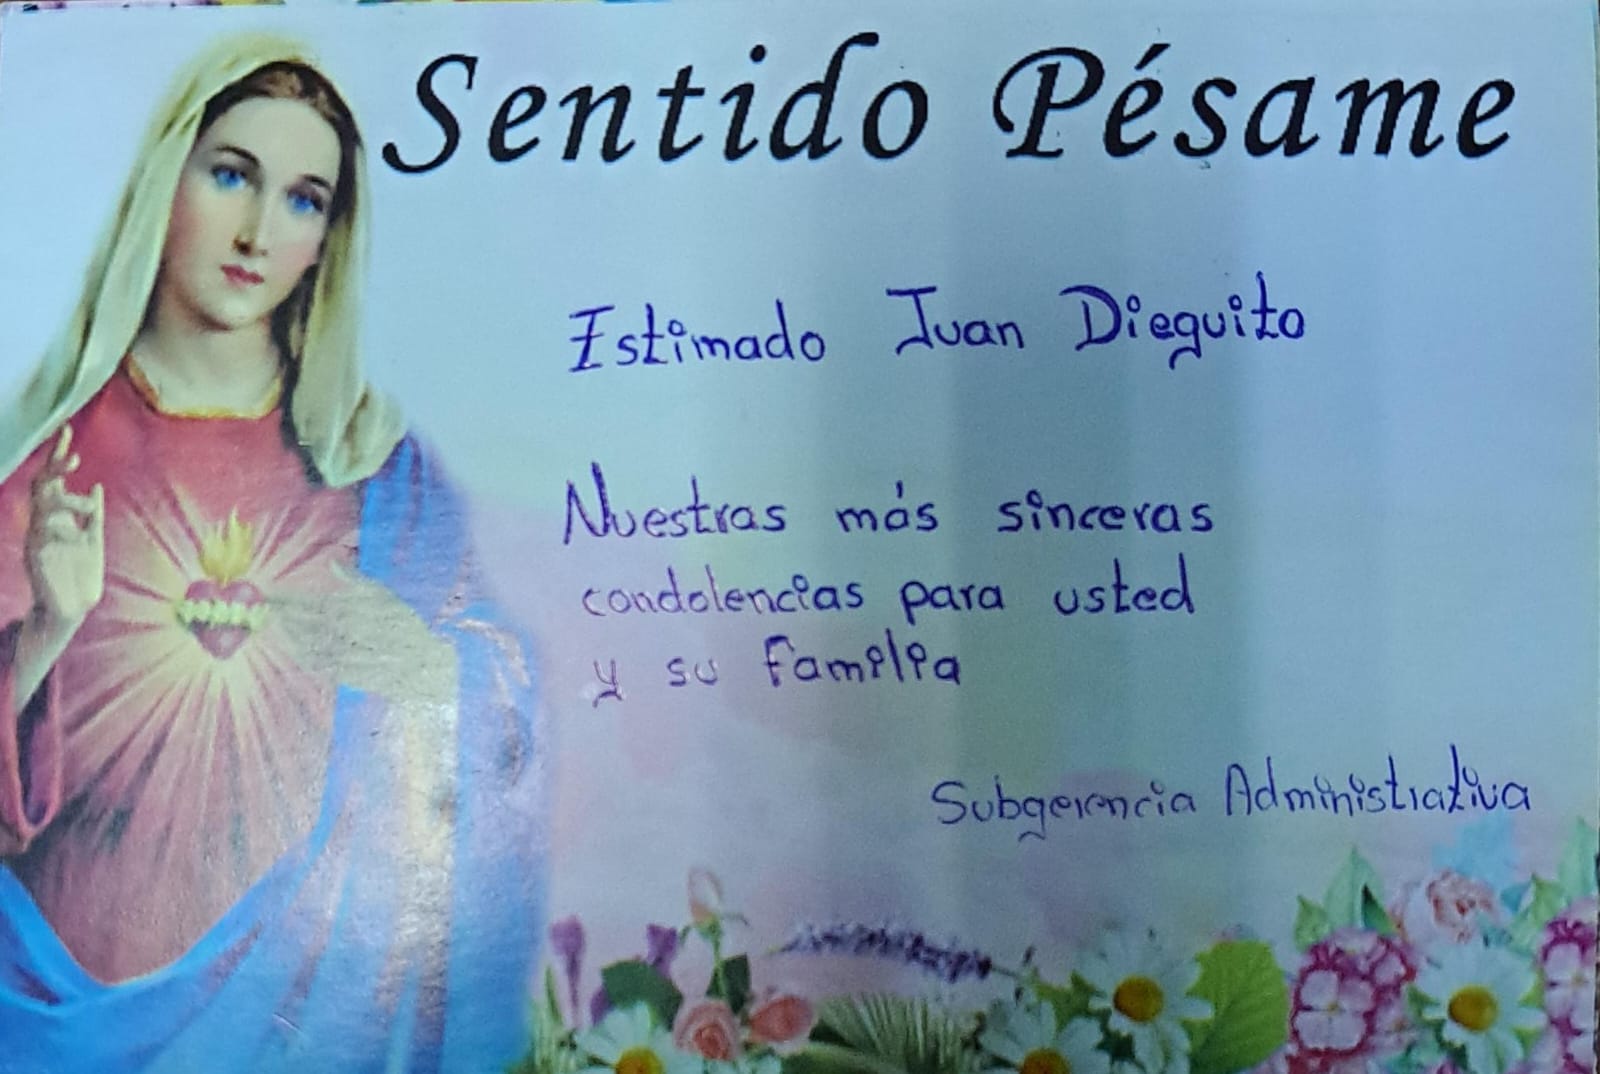 Sentido Pésame
Estimado Juan Dieguito
Nuestras más sinceras
condolencias para usted
y su familia
Subgerencia Administrativa